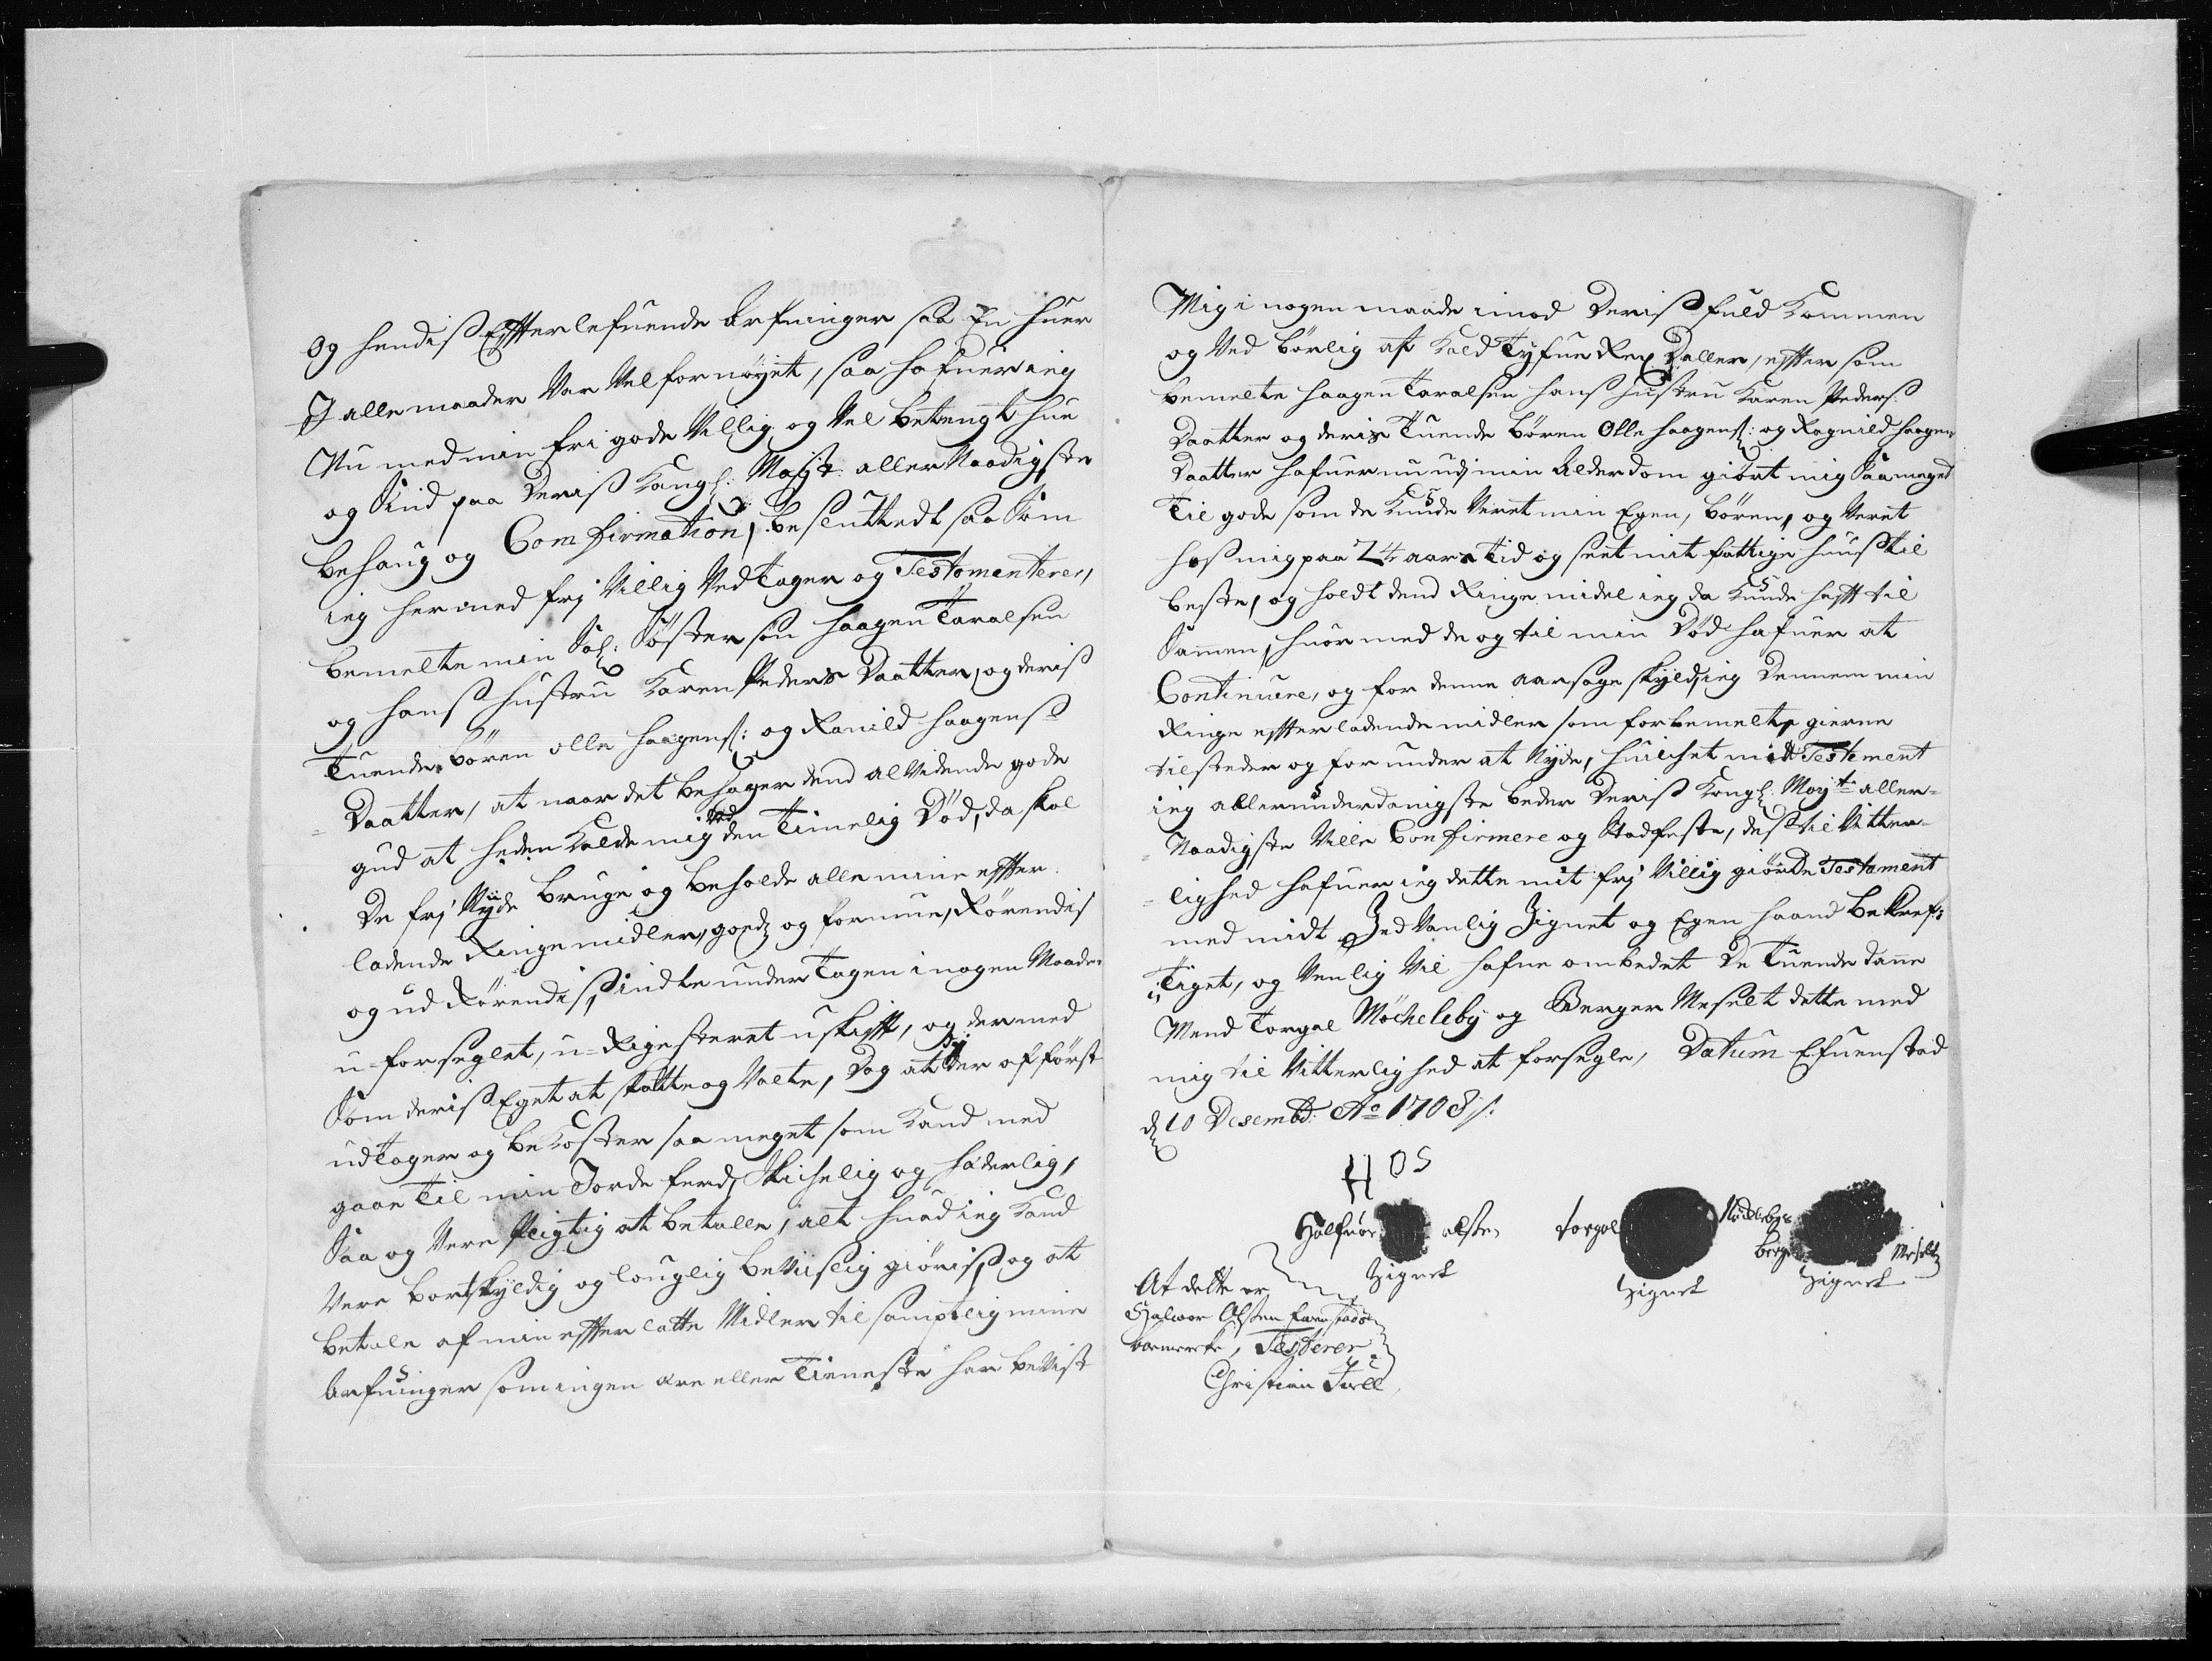 og hendis Effterlefuende Arfuinger saa En huer
I alle maader Var Vel fornøÿet, saa hafuer ieg
Nu med min fri gode Villig og Vel betengt hue
og Sind paa Deriß Kongl: Maÿst: aller Naadigste
behaug og Comfirmation, besluttedt saa Som
ieg hermed frj Villig Ved tager og Testomenterer,
bemelte min Sal: Søster søn Haagen Taralsen
og hanß Hustru Karen Peders Daatter, og deriß
Tuende børen olle Haagenß: og Ranild Haagenß
Daatter, at naar det behager dend alVidende gode
gud at heden Kalde mig Ved den Timelig Død, da skal
De frj Nÿde bruge og beholde alle mine effter
ladende Ringe midler, godz og formue, Rørendis
og ud Rørendis, indte under Tagen i nogen Maader
u-forseglet, u-Rigesteret uskifft, og der med
Som deris Eget at skalte og Valte, Dog at dj der af først
udtager og bekoster saa meget som Kand med
gaae til min Jorde ferd, Skickelig og Hæderlig,
Saa og Vere pligtig at betalle, alt huad ieg Kand
Vere bortskÿldig og louglig beViislig giøris, og at
betale af min effter latte Midler til samptlig mine
Arfuinger som ingen ære eller Tieneste har beVist
Mig i nogen maade imod Deriß fuld Kommen
og Ved børlig aff Kald Tÿfue Rex Daller, effter som
bemelte Haagen Taralsen hanß Hustru Karen Pederß:
Daatter og deris Tuende børen Olle Haagenß: og Ragnild Haagens
Daatter hafuer nu udj min Alderdom giort mig Saa meget
Til gode som de Kunde Veret min Egen, børen, og Veret
hos mig paa 24 aars Tid og seet mit fattige huuß til
beste, og holdt dend Ringe midel ieg da Kunde hafft til
Samen, huor med de og til min Død hafuer at
Continuere, og for denne aarsage skÿld, ieg Dennem min
Ringe effterladende midler som forbemelte gierne
tilsteder og for under at Nÿde, huilchet mit Testement
ieg allerunderdanigste beder Deriß Kongl: Maÿt: aller-
Naadigste Ville Confirmere og Stadfeste, des til Vitter-
lighed hafuer ieg dette mit frj Villig giorde Testament
med midt Sed Vanlig Zignet og Egen haand bekref-
tiget, og Venlig Vil hafue ombedet De Tuende danne
Mend Torgal Møcheleby og Berger Meselt dette med
mig til Vitterlighed at forsegle, Datum Efuenstad
d 10 Desembr: Ao 1708 ∕.
H O S
Halfuor olsen
Zignet
torgal Møckleby
Zignet
berger Meselt
Zignet
At dette er
Halvor Olsten Euenstads
bomercke, Testerer
Christian Juell